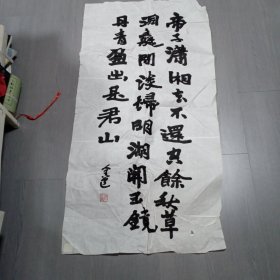 帝子潇湘去不還空餘秋草
洞庭間淡婦明湖開玉鏡
丹青画出是君山